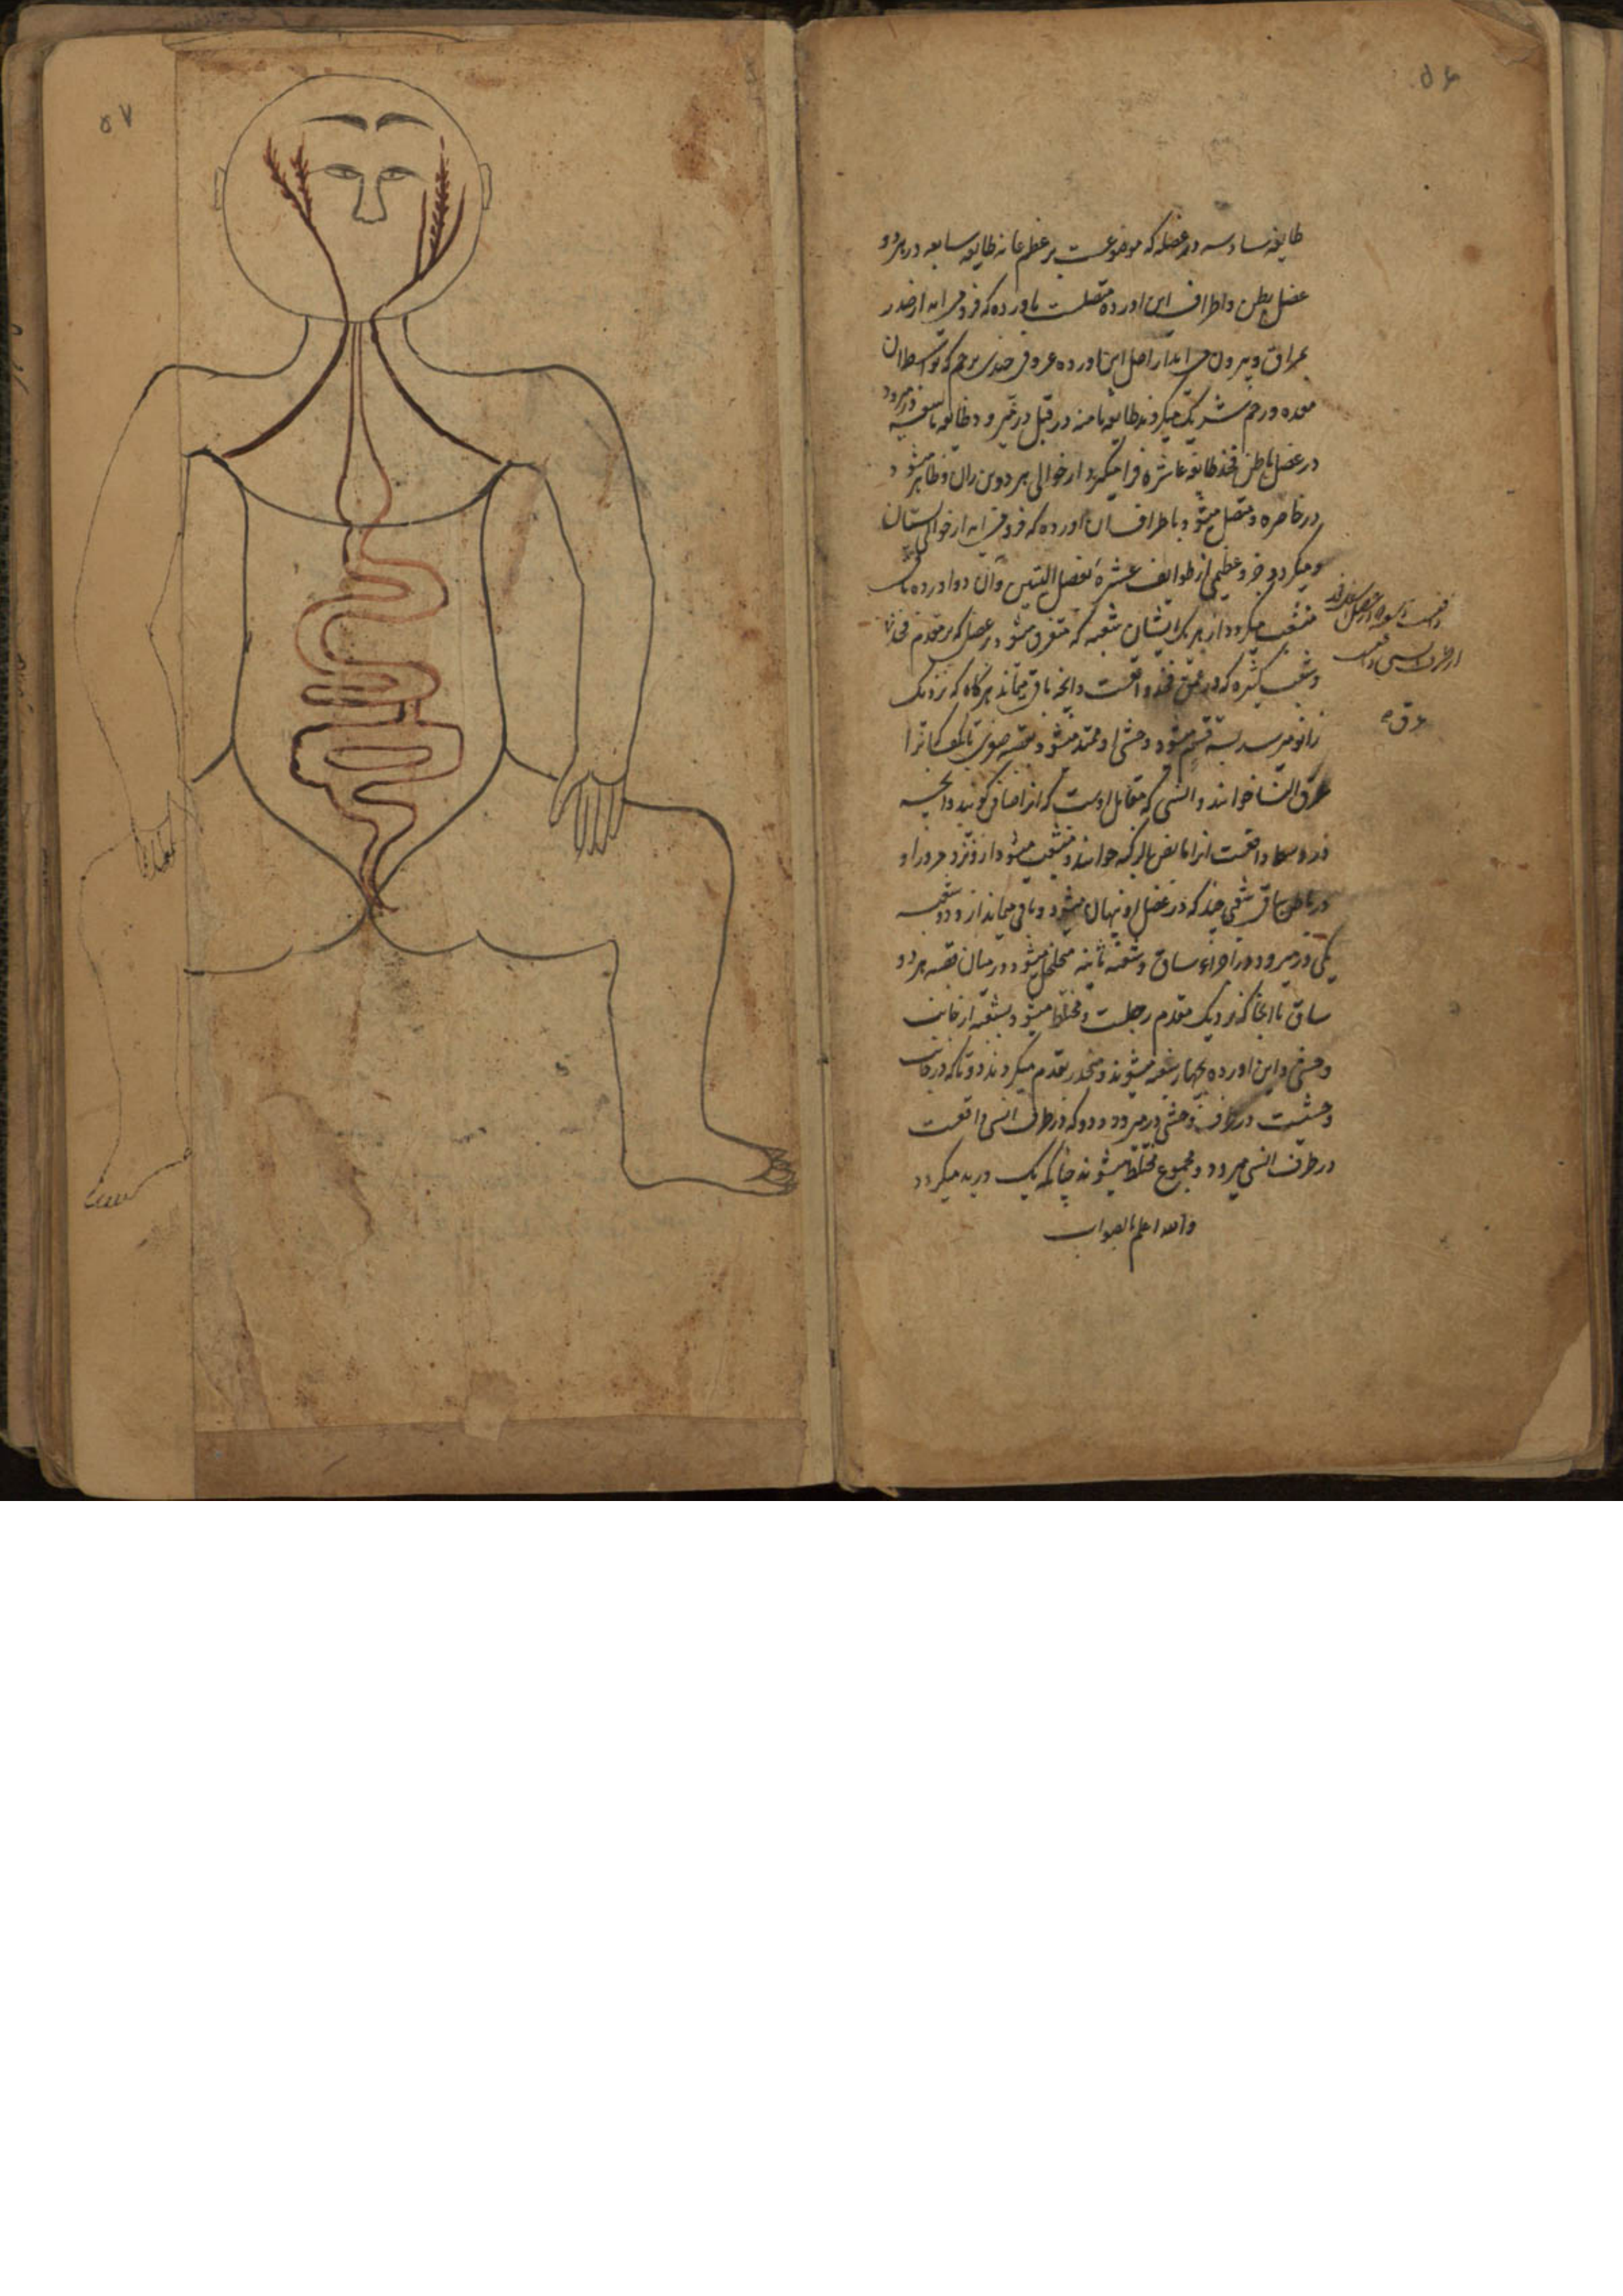 ۵۶
طایفه سادسه در عضله که موضوعست بر عظم عانه طایفه سابعه در هر دو
عضل بطن و اطراف این اورده متصلست باورده که فرو می‌اید از صدر
بمراق و بیرون می‌اید از اصل این اورده عروقی چندی برحم که بتوسط آن
معده و رحم شریک میکردند طایفه ثامنه در قبل در میرود و طایفه تاسعه در میرود
در عضل باطن فخذ طایفه عاشره فرا میکیرد از حوالی هر دو بن ران و ظاهر میشود
در خاصره و متصل میشود با طراف آن اورده که فرو می‌اید از حوالی پستان
و میکردد جزو عظیمی از طوایف عشره بعضل الیتین و آن دو اورده
منشعب میکردد از هر یک ایشان شعبه که متفرق میشود در عضل که بر مقدم فخذ
و شعب کثیره که در عمق فخذ واقعست و انچه باقی میماند هر کاه که نزدیک
زانو میرسد بسه قسم میشود وحشی او ممتد میشود بقصبه صغری تا کعب کا نرا
عرق النسا خوانند و انسی که مقابل اوست که انرا صافن کویند و انچه
در وسط واقعست انرا مابض بالرکبه خوانند و منشعب میشود از و نزد مرور او
در باطن ساق شعبی چند که در عضل او نهان میشود و باقی میماند از و دو شعبه
یکی در میرود در اجزاء ساق و شعبه ثانیه متخلل میشود در میان قصبه هر دو
ساق تا انجا که نزدیک مقدم رجلست و مختلط میشود بشعبه از جانب
وحشی و این اورده بچهار شعبه میشوند و منحدر بقدم میکردند دو تا که در جانب
وحشیست در طرف وحشی در میرود و دو که در طرف انسی واقعست
در طرف انسی میرود و مجموع مختلط میشوند چنانکه یک ورید میکردد
والله اعلم بالصواب
عرق
۵۷